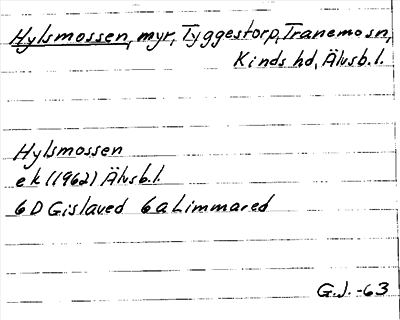 Hylsmossen, myr, Tyggestorp, Tranemo sn,
Kinds hd, Älvsb.l.
Hylsmossen
ek (1962) Älvsb.l.
6D Gislaved 6a Limmared
G.J. -63